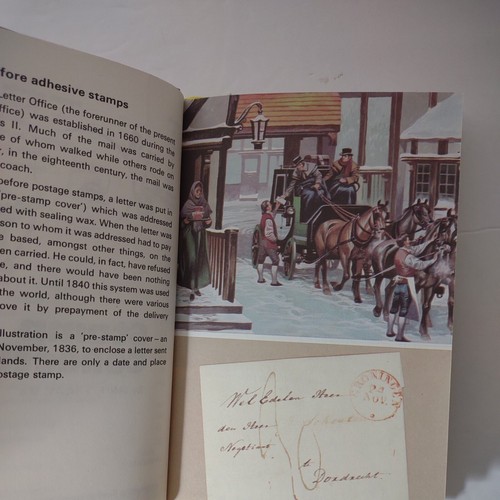 fore adhesive stamps
Letter Office (the forerunner of the present
ffice) was established in 1660 during the
s II. Much of the mail was carried by
e of whom walked while others rode on
r, in the eighteenth century, the mail was
coach.
before postage stamps, a letter was put in
pre-stamp cover') which was addressed
ed with sealing wax. When the letter was
son to whom it was addressed had to pay
a based, amongst other things, on the
en carried. He could, in fact, have refused
e, and there would have been nothing
about it. Until 1840 this system was used
the world, although there were various
ove it by prepayment of the delivery
llustration is a 'pre-stamp' cover – an
November, 1836, to enclose a letter sent
lands. There are only a date and place
ostage stamp.
GRONINGEN
22
NOV.
Wel Edelen Heer
den Heer
te
Dordrecht